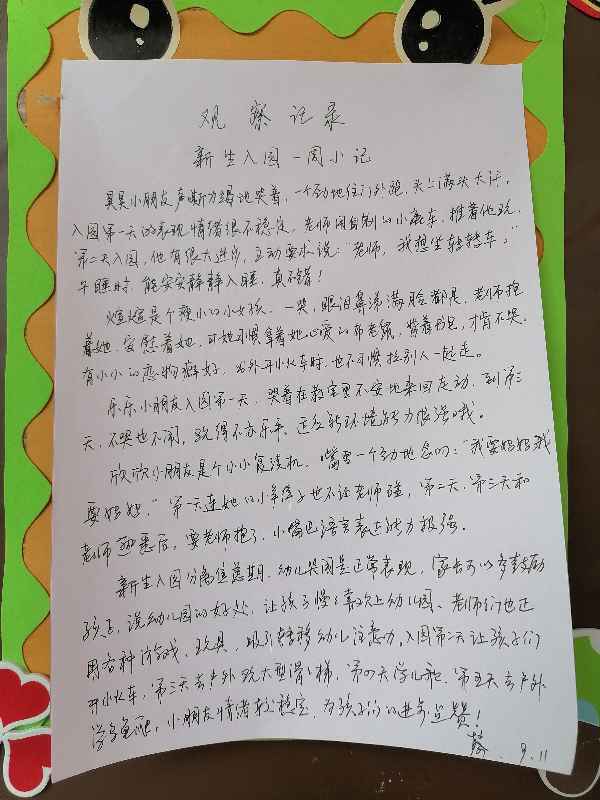 观察记录
新生入园一周小记
昊昊小朋友声嘶力竭地哭着,一个劲地往门外跑,头上满头大汗,
入园第一天的表现情绪很不稳定,老师用自制的小鹿车,推着他玩,
第二天入园,他有很大进步,主动要求说:“老师,我想坐轱轱车。”
午睡时,能安安静静入睡,真不错!
煊煊是个瘦小的小女孩,一哭,眼泪鼻涕满脸都是,老师抱
着她,安慰着她,可她习惯拿着她心爱的布老鼠,背着书包,才肯不哭。
有小小的恋物癖好,户外开小火车时,也不习惯拉别人一起走。
乐乐小朋友入园第一天,哭着在教室里不安地来回走动,到第三
天,不哭也不闹,玩得不亦乐乎,适应新环境能力很强哦。
欣欣小朋友是个小小复读机,嘴里一个劲地念叨:“我要妈妈我
要妈妈,”第一天连她的小鼻子也不让老师碰,第二天、第三天和
老师熟悉后,要老师抱了,小嘴巴语言表达能力极强。
新生入园分离焦虑期,幼儿哭闹是正常表现,家长可以多鼓励
孩子,说幼儿园的好处,让孩子慢慢喜欢上幼儿园、老师们也正
用各种游戏,玩具,吸引转移幼儿注意力,入园第二天让孩子们
开小火车,第三天去户外玩大型滑滑梯,第四天学儿歌,第五天去户外
小朋友情绪较稳定,为孩子们的进步点赞!
9.11